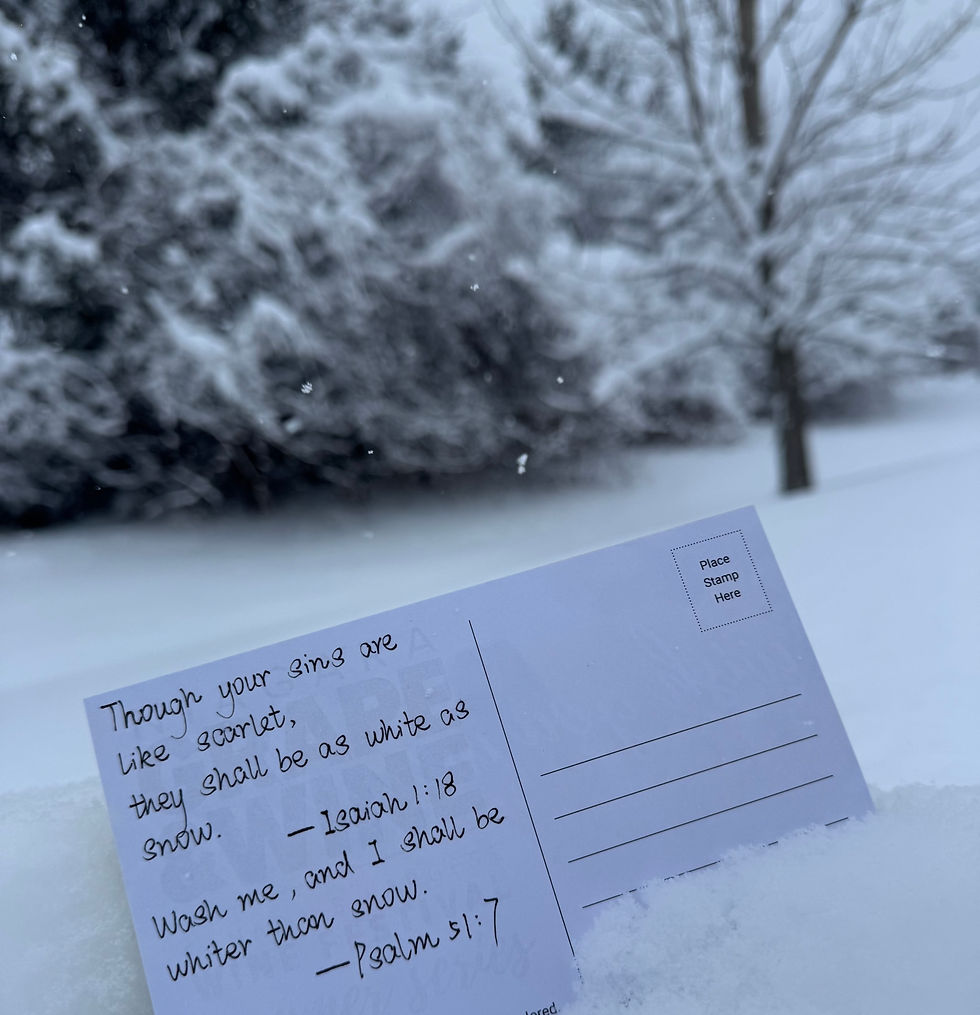 Place
Stamp
Here
Though your sins are
like scarlet,
they shall be as white as
snow. — Isaiah 1:18
Wash me, and I shall be
whiter than snow.
— Psalm 51:7